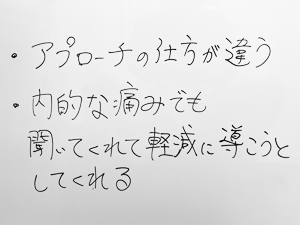 ・アプローチの仕方が違う
・内的な痛みでも
聞いてくれて軽減に導こうと
してくれる